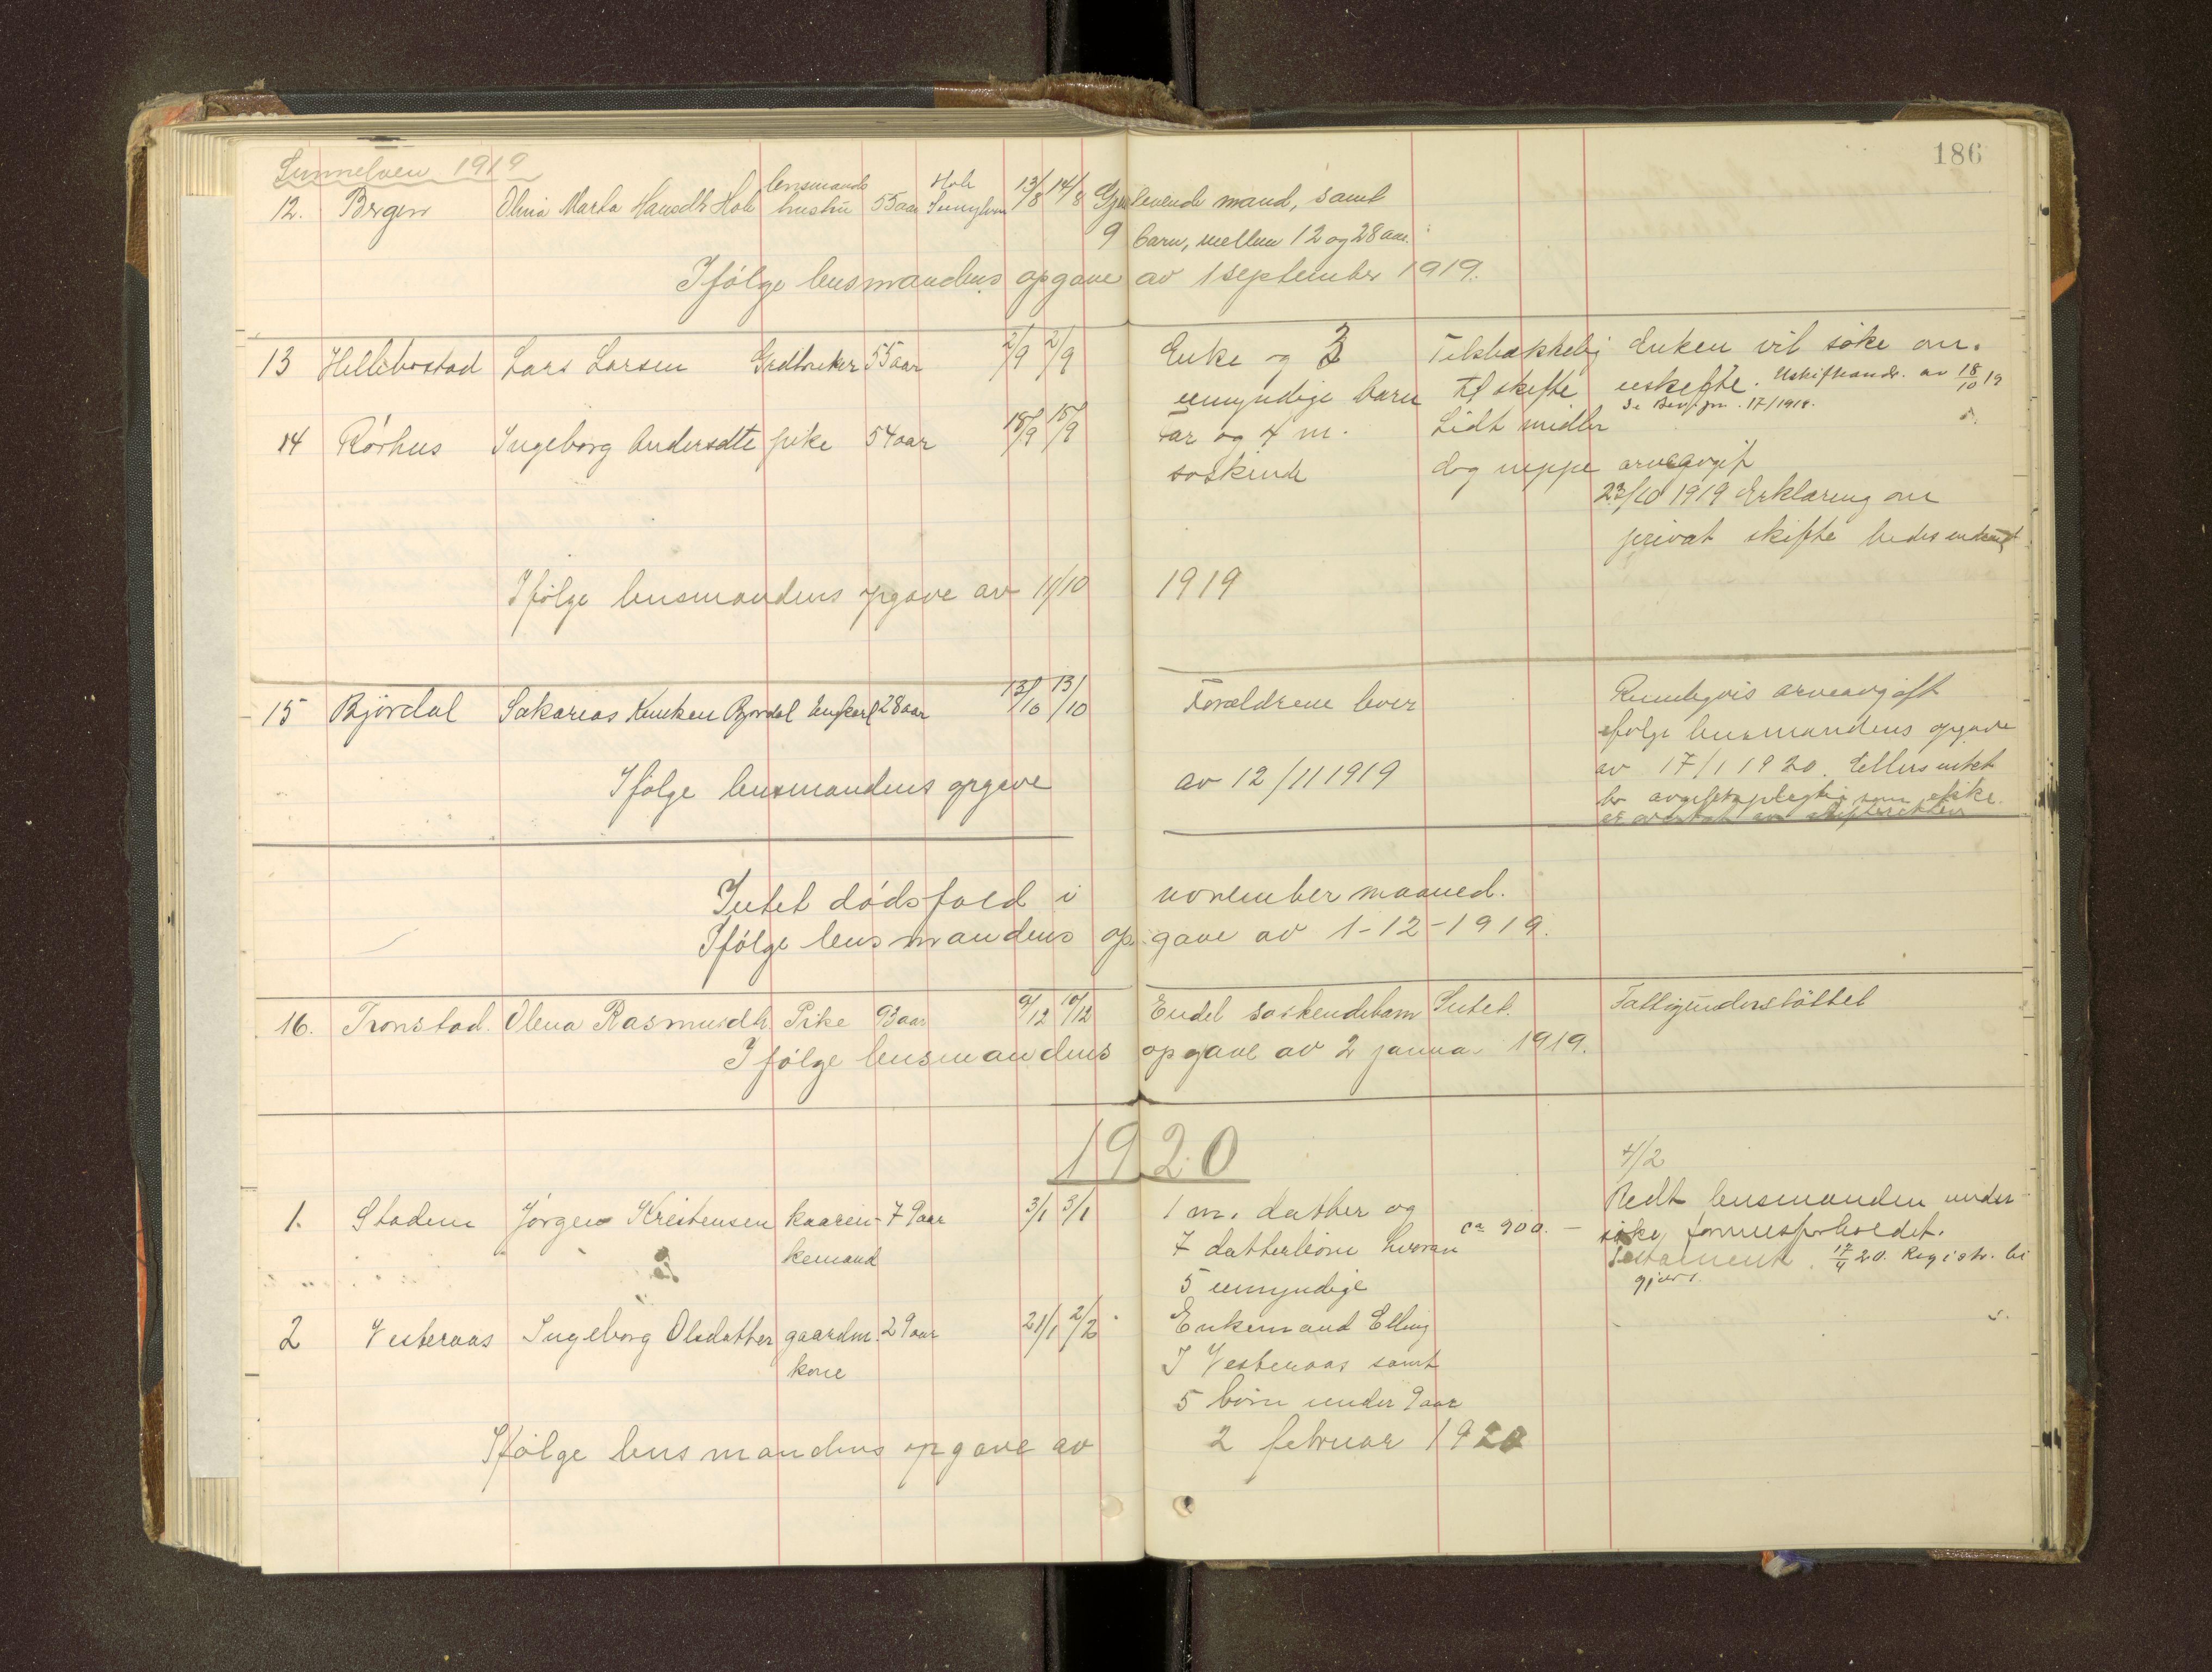 186
Sunnelven 1919
lensmands Hole
12. Bergen Olina Marta Hansdtr Hole hustru 55 aar Sunnylven 13/8 14/8 Gjenlevende mand, samt
9 barn, mellem 12 og 28 aar.
Ifølge lensmandens opgave av 1 september 1919.
13 Hellebostad Lars Larsen Gardbruker 55 aar 2/9 2/9 Enke og 3 Tilstrækkelig Enken vil søke om
umyndige barn til skifte uskifte. Uskifteandr. av 18/10 19
14 Rørhus Ingeborg Andersdtr pike 54 aar 15/9 15/9 Far og 4 m. Lidt midler
søskende dog neppe arveavgift
23/10 1919 Erklæring om
privat skifte bedes indsendt
Ifølge lensmandens opgave av 11/10 1919
15 Bjørdal Sakarias Knutsen Bjørdal Ungkarl 28 aar 13/10 13/10 Forældrene lever
Rimeligvis arveavgift
ifølge lensmandens opgave
Ifølge lensmandens opgave av 12/11 1919
av 17/1 1920. Ellers intet
Intet dødsfald i november maaned.
Ifølge lensmandens opgave av 1-12-1919.
16. Tronstad. Olena Rasmusdtr Pike 93 aar 9/12 10/12 Endel søskendebarn Intet. Fattigunderstøttet
Ifølge lensmandens opgave av 2 januar 1919.
1920
4/2
1. Stadem Jørgen Kristensen kaaren- 79 aar 3/1 3/1 1 m. datter og ca 900.- Bedt lensmanden under-
kemand 7 datterbørn hvorav søke formuesforholdet.
5 umyndige Testament. 17/4 20. Registr. bi
2 Vesteraas Ingeborg Olsdatter gaardm. 29 aar 21/1 2/2 Enkemand Elling
kone I Vesteraas samt
5 børn under 9 aar
Ifølge lensmandens opgave av 2 februar 1920